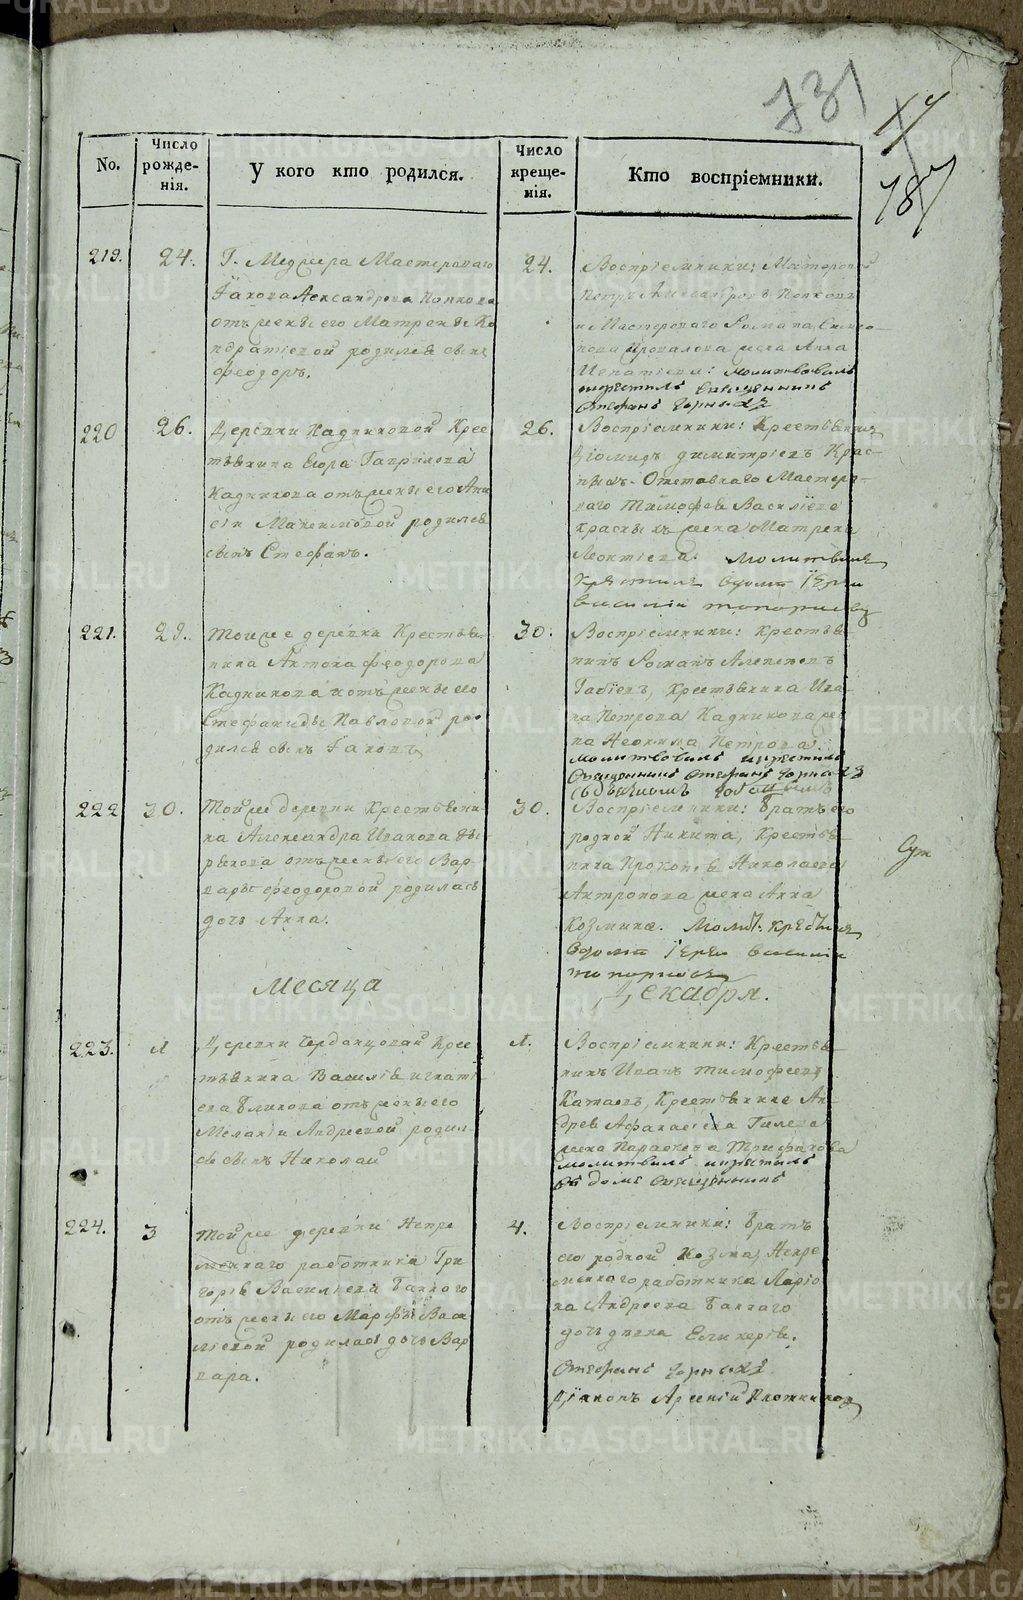 731
17
787
No.
Число рожде-нія.
У кого кто родился.
Число креще-нія.
Кто воспріемники.
219.
24.
Г. Медиера Мастероваго
Іакова Александрова Попкова
отъ жены его Матрены Ко
ндратіевой родился сынъ
феодоръ.
24.
Воспріемники: Мастеровой
Петръ Александровъ Попковъ
и Мастероваго Романа Симео
нова жена Анна
Игнатіева: молитвовалъ
и крестилъ Священникъ
Стефанъ Горныхъ
220
26.
Деревни Кадниковой Крес
тьянина Егора Гаврилова
Кадникова отъ жены его Ани
сіи Максимовой родился
сынъ Стефанъ.
26.
Воспріемники: Крестьянинъ
Діомидъ Димитріевъ Крас
ныхъ. Отставнаго Мастеро-
ваго Тимофея Василіева
Красныхъ жена Матрена
Леонтіева. Молитвилъ
Крестилъ въ дому Іерей
василій топорковъ
221.
29.
Тойже деревни Крестья-
нина Антона Феодорова
Кадникова и отъ жены его
Стефаниды Павловой ро-
дился сынъ Іаковъ
30.
Воспріемники: Крестья-
нинъ Романъ
Крестьянина Ива-
на Петрова Кадникова же-
на Неонила Петрова:
молитвовалъ и крестилъ
Священникъ Стефанъ Горныхъ
222
30.
Тойже деревни Крестьяни-
на Александра Иванова
отъ жены его Вар-
вары Феодоровой родилась
дочь Анна.
30.
Воспріемники: братъ его
родной Никита, Крестья-
нина Прокопья Николаева
Антропова жена Анна
Козмина. Молит: Крестилъ
въ дому Іерей василій
топорковъ
Месяца
Декабря.
223.
1
Деревни Черданцовой Крес
тьянина Василія Игнаті
ева отъ жены его
Меланіи Андреевой родил-
ся сынъ Николай
1.
Воспріемники: Крестья-
нинъ Иванъ Тимофеевъ
Катаевъ, Крестьянина Ан-
дрея Афанасіева Гилева
жена Параскева Трифанова
молитвилъ и крестилъ
въ доме Священникъ
224.
3
Тойже деревни Непре
меннаго работника Гри
горія Василіева Баннаго
отъ жены его Марфы Васи
ліевой родилась дочь Вар
вара.
4.
Воспріемники: братъ
его родной Козма, Непре
меннаго работника Ларіо
на Андреева Баннаго
дочь девка Гликерія.
Стефанъ Горныхъ
Діаконъ Арсеній Плотниковъ
METRIKI.GASO-URAL.RU